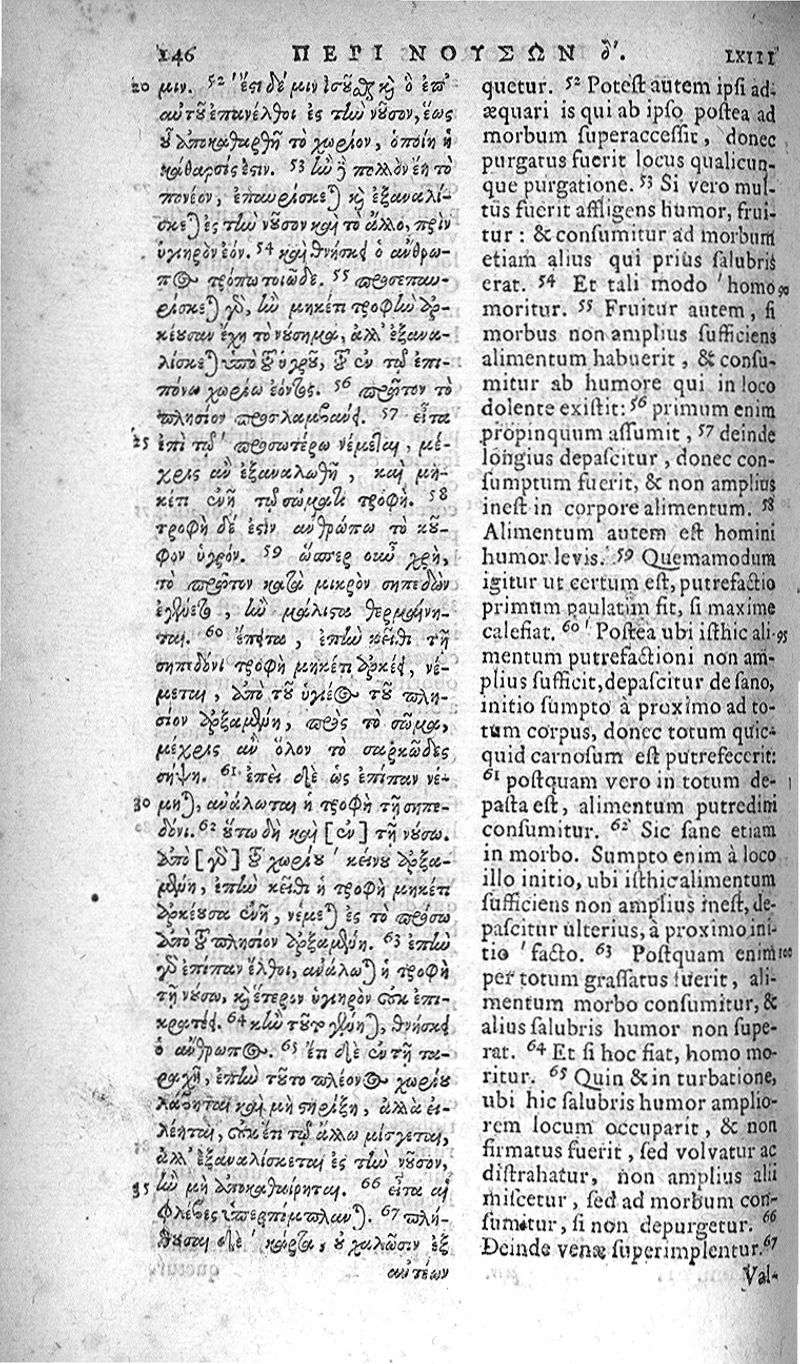 146 ΠΕΡΙ ΝΟΥΣΩΝ δ΄. LXIII
20 μιν. 52 ἔςι δέ μιν ἰσοῦσθαι κὴ ὁ ἐπ'
αὐτοῦ ἐπανέλθοι ἐς τὴν νοῦσον, ἕως
οὗ ἀποκαθαρθῇ τὸ χωρίον, ὁποίη ἡ
κάθαρσίς ἐςιν. 53 ἢν ἢ πολλὸν ἔῃ τὸ
πονέον, ἐπαυρίσκεται κὴ ἐξαναλί-
σκεται ἐς τὴν νοῦσον καὶ τὸ ἄλλο, πρὶν
ὑγιηρὸν ἐόν. 54 καὶ θνήσκει ὁ ἄνθρω-
πος τρόπῳ τοιῷδε. 55 προσεπαυ-
ρίσκεται γὰρ, ἢν μηκέτι τροφὴν ἀρ-
κέουσαν ἔχῃ τὸ νόσημα, ἀλλ' ἐξανα-
λίσκεται ὑπὸ τοῦ ὑγροῦ, τοῦ ἐν τῷ ἐπι-
πόνῳ χωρίῳ ἐόντος. 56 πρῶτον τὸ
πλησίον προσλαμβάνει. 57 εἶτα
25 ἐπὶ τῷ ' προσωτέρω νέμεται, μέ-
χρις ἂν ἐξαναλωθῇ, καὶ μη-
κέτι ἐνῇ τῷ σώματι τροφή. 58
τροφὴ δέ ἐςιν ἀνθρώπῳ τὸ κοῦ-
φον ὑγρόν. 59 ὥσπερ οὖν χρὴ,
τὸ πρῶτον κατὰ μικρὸν σηπεδὼν
ἐγένετο, ἢν μάλιςα θερμαίνη-
ται. 60 ἔπειτα, ἐπὴν κεῖθι τῇ
σηπεδόνι τροφὴ μηκέτι ἀρκέῃ, νέ-
μεται, ἀπὸ τοῦ ὑγιέος τοῦ πλη-
σίον ἀρξαμένη, πρὸς τὸ σῶμα,
μέχρις ἂν ὅλον τὸ σαρκῶδες
σήψῃ. 61 ἐπεὶ δὲ ὡς ἐπίπαν νέ-
30 μηται, ἀνάλωται ἡ τροφὴ τῇ σηπε-
δόνι. 62 οὕτω δὴ καὶ [ἐν] τῇ νούσῳ.
ἀπὸ [γὰρ] τοῦ χωρίου ' κείνου ἀρξα-
μένη, ἐπὴν κεῖθι ἡ τροφὴ μηκέτι
ἀρκέουσα ἐνῇ, νέμεται ἐς τὸ πρόσω
ἀπὸ τοῦ πλησίον ἀρξαμένη. 63 ἐπὴν
γὰρ ἐπίπαν ἔλθοι, ἀνάλωται ἡ τροφὴ
τῇ νούσῳ, κὴ ἕτερον ὑγιηρὸν οὐκ ἐπι-
κρατέει. 64 κἢν τοῦτο γένηται, θνήσκει
ὁ ἄνθρωπος. 65 ἔτι δὲ ἐν τῇ τα-
ραχῇ, ἐπὴν τοῦτο πλέονος χωρίου
λάβηται καὶ μὴ ςηρίξῃ, ἀλλὰ εἰ-
λέηται, οὐκ ἔτι τῷ ἄλλῳ μίσγεται,
ἀλλ' ἐξαναλίσκεται ἐς τὴν νοῦσον,
35 ἢν μὴ ἀποκαθαίρηται. 66 εἶτα αἱ
φλέβες ὑπερπίμπλανται. 67 πλή-
θουσαι δὲ ' κάρτα, οὐ χαλῶσιν ἐξ
αὐτέων
quetur. 52 Potest autem ipsi ad-
æquari is qui ab ipso postea ad
morbum superaccessit, donec
purgatus fuerit locus qualicun-
que purgatione. 53 Si vero mul-
tus fuerit affligens humor, frui-
tur: & consumitur ad morbum
etiam alius qui prius salubris
erat. 54 Et tali modo ' homo 90
moritur. 55 Fruitur autem, si
morbus non amplius sufficiens
alimentum habuerit, & consu-
mitur ab humore qui in loco
dolente existit: 56 primum enim
propinquum assumit, 57 deinde
longius depascitur, donec con-
sumptum fuerit, & non amplius
inest in corpore alimentum. 58
Alimentum autem est homini
humor levis. 59 Quemamodum
igitur ut certum est, putrefactio
primum paulatim fit, si maxime
calefiat. 60 ' Postea ubi isthic ali- 95
mentum putrefactioni non am-
plius sufficit, depascitur de sano,
initio sumpto à proximo ad to-
tum corpus, donec totum quic-
quid carnosum est putrefecerit:
61 postquam vero in totum de-
pasta est, alimentum putredini
consumitur. 62 Sic sane etiam
in morbo. Sumpto enim à loco
illo initio, ubi isthic alimentum
sufficiens non amplius inest, de-
pascitur ulterius, à proximo ini-
tio ' facto. 63 Postquam enim 100
per totum grassatus fuerit, ali-
mentum morbo consumitur, &
alius salubris humor non supe-
rat. 64 Et si hoc fiat, homo mo-
ritur. 65 Quin & in turbatione,
ubi hic salubris humor amplio-
rem locum occuparit, & non
firmatus fuerit, sed volvatur ac
distrahatur, non amplius alii
miscetur, sed ad morbum con-
sumitur, si non depurgetur. 66
Deinde venæ superimplentur. 67
Val-